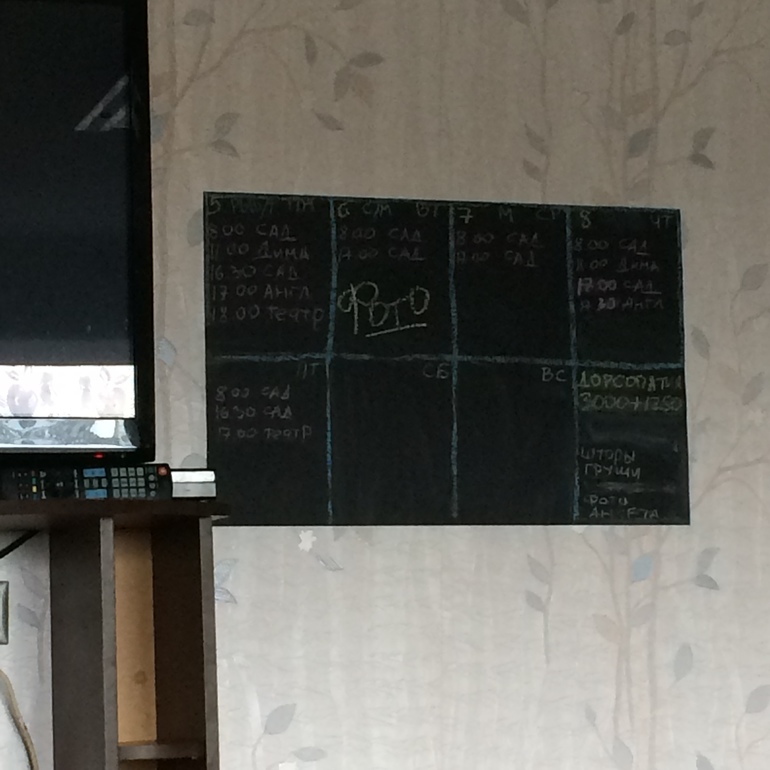 5
8:00 САД
11:00 Дима
16.30 САД
17.00 АНГЛ
18.00 театр
6 ВТ
8:00 САД
17.00 САД
Фото
7 СР
8:00 САД
17.00 САД
8 ЧТ
8:00 САД
11:00 Дима
17:00 САД
17 30 АНГЛ
ПТ
8:00 САД
16 30 САД
17.00 театр
СБ
ВС
3000+1250
ШТОРЫ
ГРУШИ
Фото